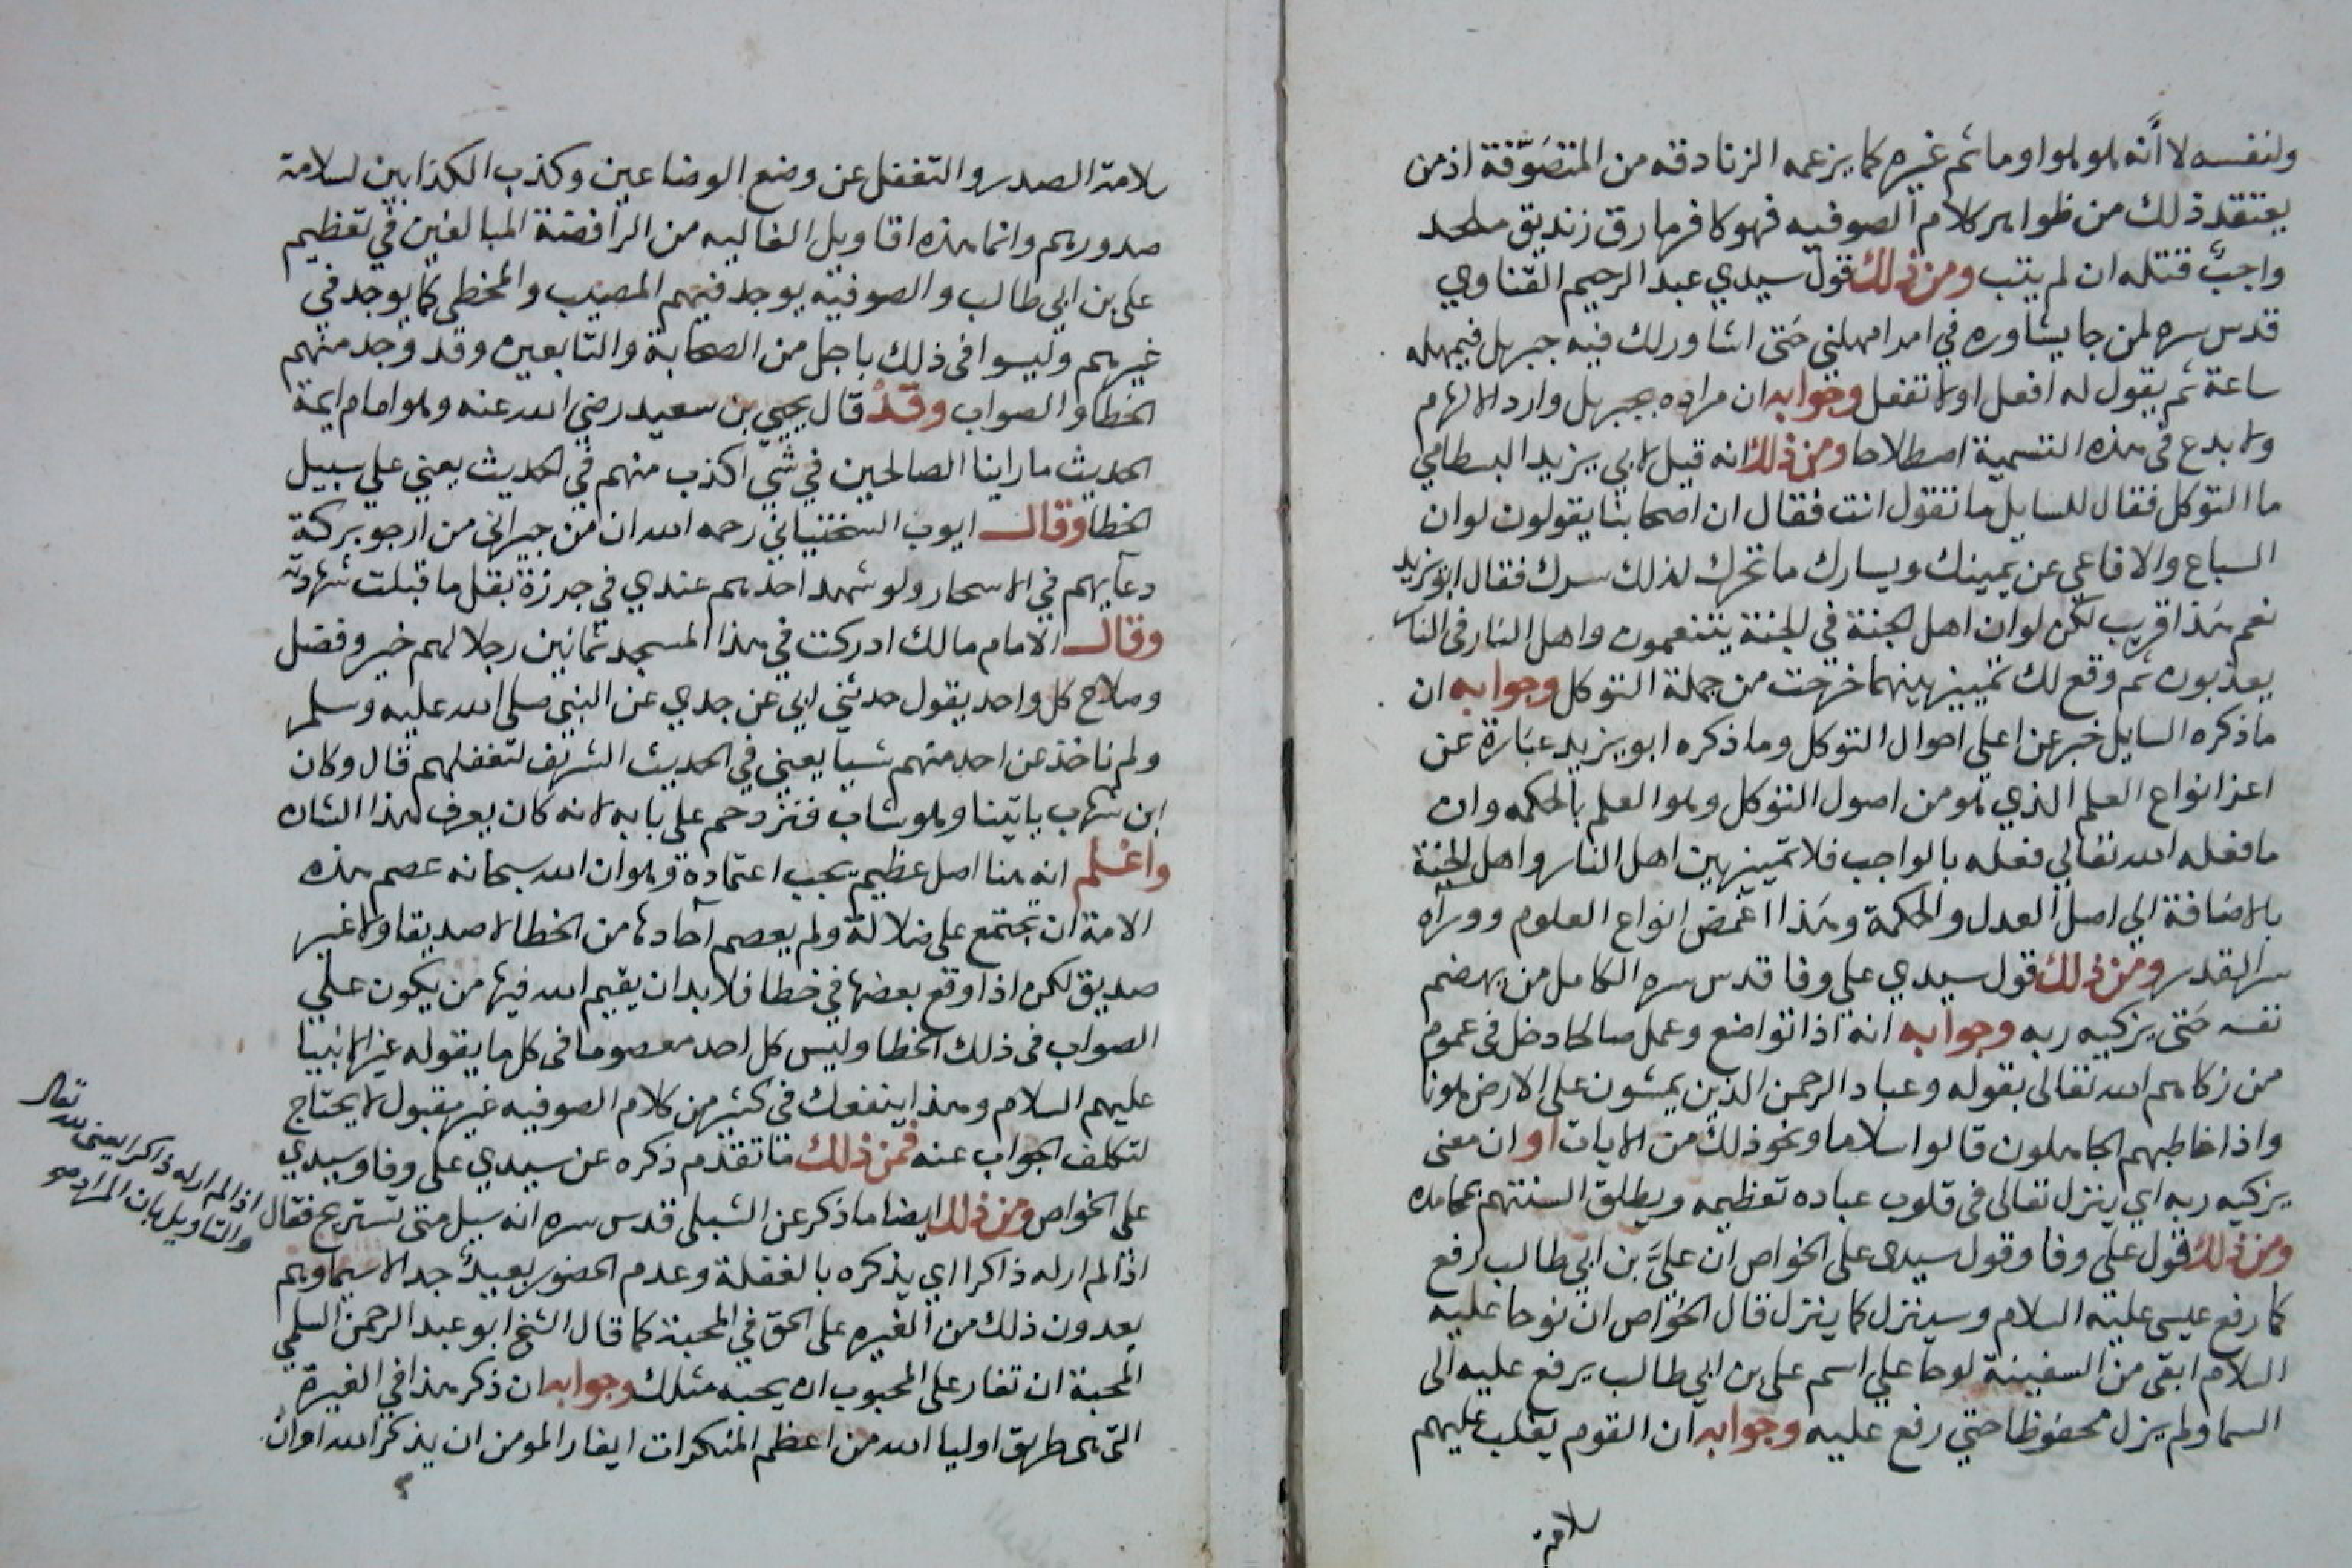 ولنفسه لا أنه هو هو اوما ثم غيره كما يزعمه الزنادقه من المتصوّفة اذ من
يعتقد ذلك من ظواهر كلام الصوفيه فهو كافر مارق زنديق ملحد
واجب قتله ان لم يتب ومن ذلك قول سيدي عبد الرحيم القناوي
قدس سره لمن جا يشاوره في امر امهلني حتى اشاور لك فيه جبريل فيمهله
ساعة ثم يقول له افعل اولا تفعل وجوابه ان مراده بجبريل وارد الالهام
ولا بدع في هذه التسمية اصطلاحا ومن ذلك انه قيل لابي يزيد البسطامي
ما التوكل فقال للسايل ما تقول انت فقال ان اصحابنا يقولون لو ان
السباع والافاعي عن يمينك ويسارك ما تحرك لذلك سرك فقال ابو يزيد
نعم هذا قريب لكن لو ان اهل الجنة في الجنة يتنعمون واهل النار في النار
يعذبون ثم وقع لك تمييز بينهما خرجت من جملة التوكل وجوابه ان
ما ذكره السايل خبر عن اعلى احوال التوكل وما ذكره ابو يزيد عبارة عن
اعز انواع العلم الذي هو من اصول التوكل وهو العلم بالحكمه وان
ما فعله الله تعالي فعله بالواجب فلا تمييز بين اهل النار واهل الجنة
بالاضافة الي اصل العدل والحكمة وهذا اغمض انواع العلوم ووراه
سر القدر ومن ذلك قول سيدي علي وفا قدس سره الكامل من يهضم
نفسه حتى يزكيه ربه وجوابه انه اذا تواضع وعمل صالحا دخل في عموم
من زكاهم الله تعالى بقوله وعباد الرحمن الذين يمشون على الارض هونا
واذا خاطبهم الجاهلون قالوا سلاما ونحو ذلك من الايات او ان معنى
يزكيه ربه اي ينزل تعالى في قلوب عباده تعظيمه ويطلق السنتهم بمحامده
ومن ذلك قول علي وفا وقول سيدى على الخواص ان عليّ بن ابي طالب رفع
كما رفع عيسى عليه السلام وسينزل كما ينزل قال الخواص ان نوحا عليه
السلام ابقى من السفينة لوحا علي اسم على بن ابي طالب يرفع عليه الى
السما ولم يزل محفوظا حتي رفع عليه وجوابه ان القوم يغلب عليهم
سلامة
سلامة الصدر والتغفل عن وضع الوضاعين وكذب الكذابين لسلامة
صدورهم وانما هذه اقاويل الغاليه من الرافضة المبالغين في تعظيم
على بن ابي طالب والصوفية يوجد فيهم المصيب والمخطى كما يوجد في
غيرهم وليسوا في ذلك باجل من الصحابة والتابعين وقد وجد منهم
الخطا والصواب وقد قال يحيي بن سعيد رضي الله عنه وهو امام ايمة
الحديث ما راينا الصالحين في شي اكذب منهم في الحديث يعني علي سبيل
الخطا وقال ايوب السختياني رحمه الله ان من جيراني من ارجو بركة
دعآيهم في الاسحار ولو شهد احدهم عندي في جرزة بقل ما قبلت شهادته
وقال الامام مالك ادركت في هذا المسجد ثمانين رجلا لهم خير وفضل
وصلاح كل واحد يقول حدثني ابي عن جدي عن النبي صلى الله عليه وسلم
ولم ناخذ عن احد منهم شيا يعني في الحديث الشريف لتغفلهم قال وكان
ابن شهاب ياتينا وهو شاب فنزدحم على بابه لانه كان يعرف هذا الشان
واعلم انه هنا اصل عظيم يجب اعتماده وهو ان الله سبحانه عصم هذه
الامة ان تجتمع على ضلالة ولم يعصم آحادها من الخطا لا صديقا ولا غير
صديق لكن اذا وقع بعضها في خطا فلا بد ان يقيم الله فيها من يكون علي
الصواب في ذلك الخطا وليس كل احد معصوما في كل ما يقوله غير الانبيا
عليهم السلام وهذا ينفعك في كثير من كلام الصوفيه غير مقبول لا يحتاج
لتكلف الجواب عنه فمن ذلك ما تقدم ذكره عن سيدي على وفا وسيدي
على الخواص ومن ذلك ايضا ما ذكر عن الشبلى قدس سره انه سيل متى تستريح فقال
اذا لم ار له ذاكرا اي يذكره بالغفلة وعدم الحضور بعيد جدا لا سيما وهم
يعدون ذلك من الغيره على الحق في المحبة كما قال الشيخ ابو عبد الرحمن السلمي
المحبة ان تغار على المحبوب ان يحبه مثلك وجوابه ان ذكر هذا في الغيرة
التي هى طريق اوليا الله من اعظم المنكرات ايغار المومن ان يذكر الله او ان
اذا لم ار له ذاكرا يعني لله تعالى
والتاويل بان المراد هو